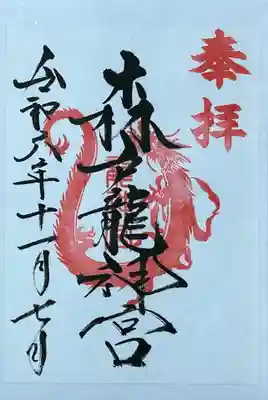 奉拝
森龍神宮
令和六年十一月七日